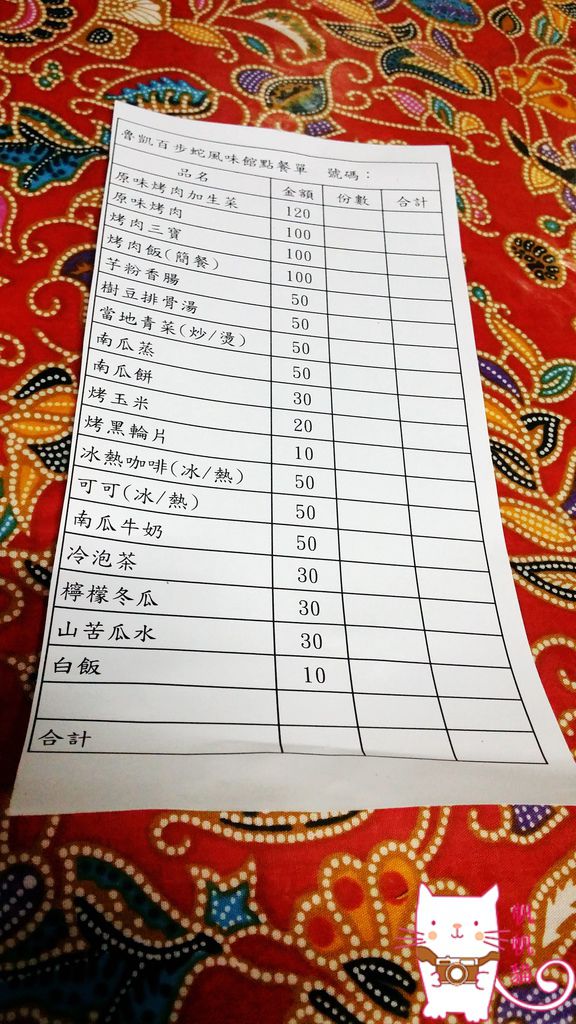 魯凱百步蛇風味館點餐單 號碼：
品名 金額 份數 合計
原味烤肉加生菜 120
原味烤肉 100
烤肉三寶 100
烤肉飯(簡餐) 100
芋粉香腸 50
樹豆排骨湯 50
當地青菜(炒/燙) 50
南瓜蒸 50
南瓜餅 30
烤玉米 20
烤黑輪片 10
冰熱咖啡(冰/熱) 50
可可(冰/熱) 50
南瓜牛奶 50
冷泡茶 30
檸檬冬瓜 30
山苦瓜水 30
白飯 10
合計